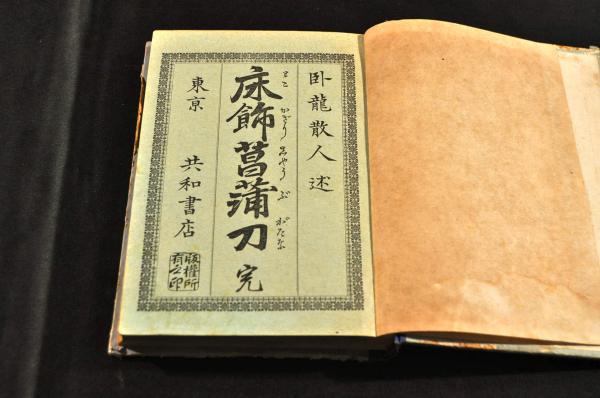 臥龍散人述
床飾菖蒲刀 完
とこかざりしやうぶがたな
東京 共和書店
版權所有之印